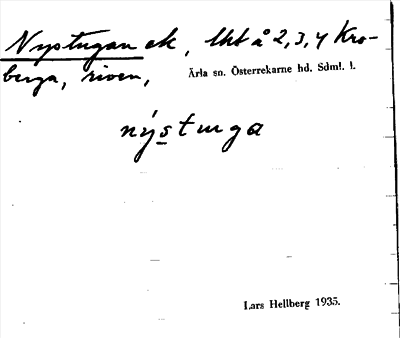 Nystugan ek, lht å 2, 3, 4 Kro-
berga, riven,
Ärla sn. Österrekarne hd. Sdml. l.
nýstuga
Lars Hellberg 1935.